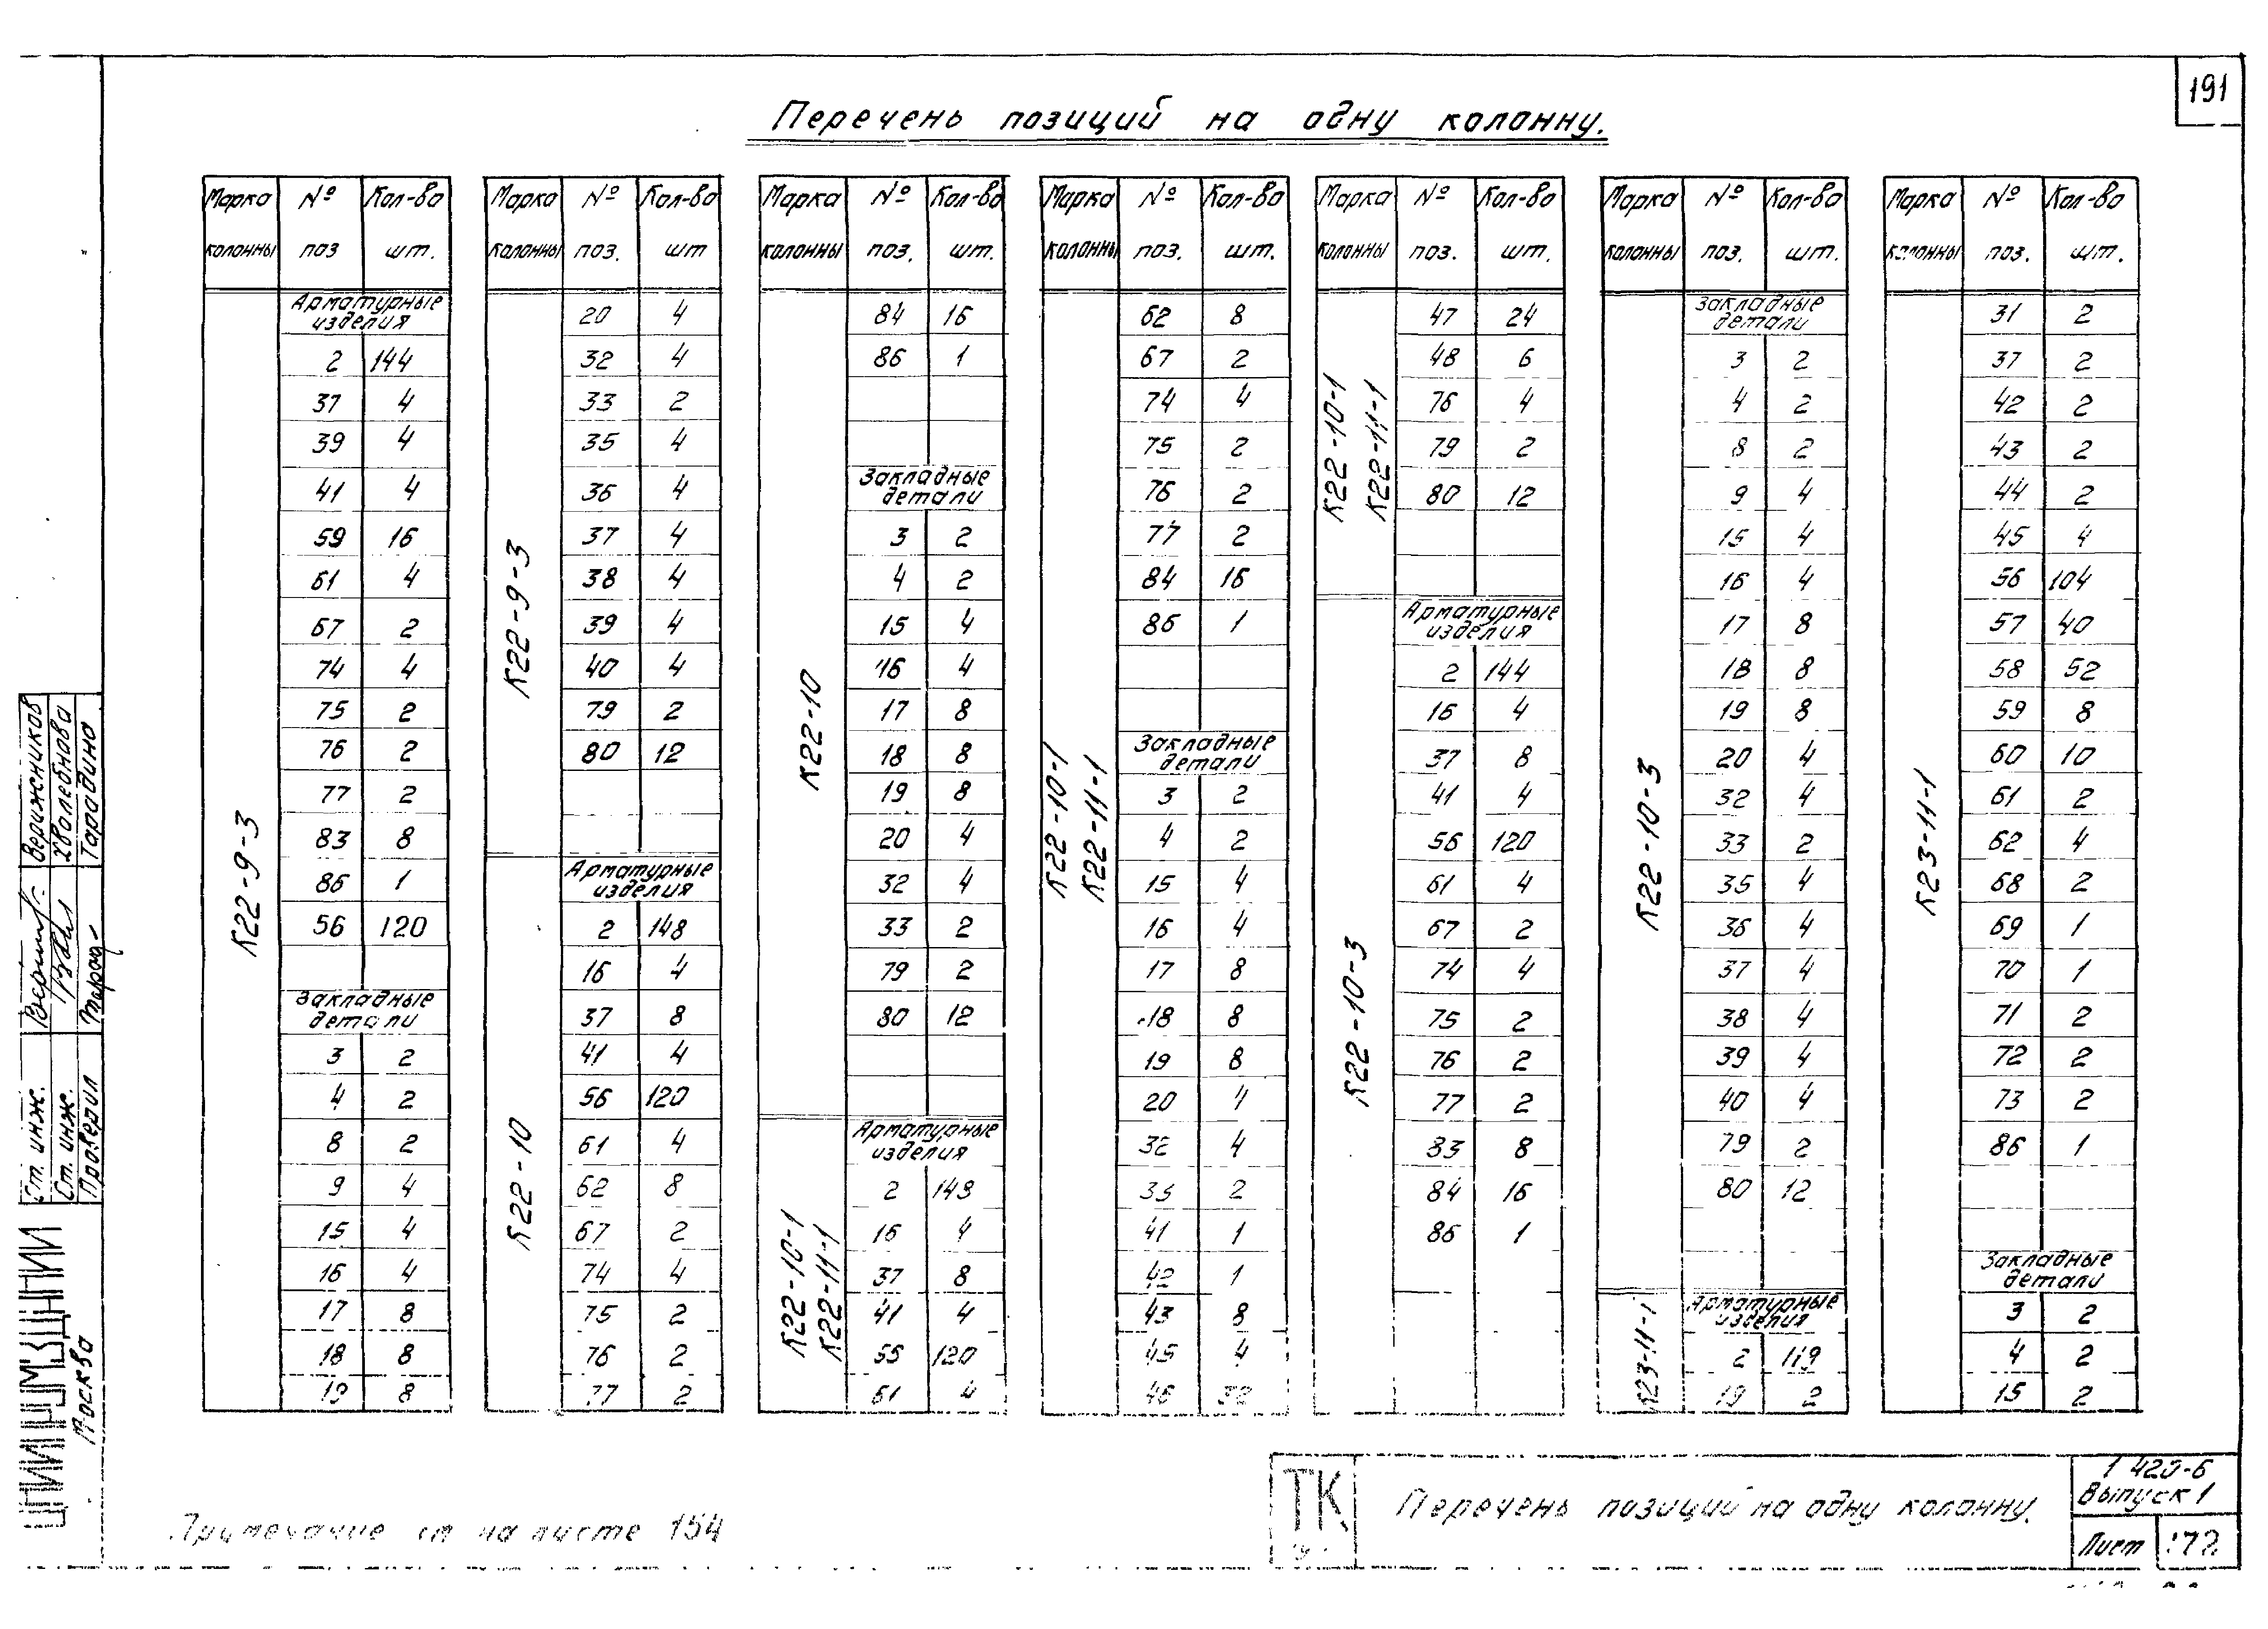 191
Перечень позиций на одну колонну.
Марка колонны № поз Кол-во шт.
К22-9-3
Арматурные изделия
2 144
37 4
39 4
41 4
59 16
61 4
67 2
74 4
75 2
76 2
77 2
83 8
86 1
56 120
Закладные детали
3 2
4 2
8 2
9 4
15 4
16 4
17 8
18 8
19 8
Марка колонны № поз. Кол-во шт
К22-9-3
20 4
32 4
33 2
35 4
36 4
37 4
38 4
39 4
40 4
79 2
80 12
К22-10
Арматурные изделия
2 148
16 4
37 8
41 4
56 120
61 4
62 8
67 2
74 4
75 2
76 2
77 2
Марка колонны № поз. Кол-во шт.
К22-10
84 16
86 1
Закладные детали
3 2
4 2
15 4
16 4
17 8
18 8
19 8
20 4
32 4
33 2
79 2
80 12
К22-10-1
К22-11-1
Арматурные изделия
2 148
16 4
37 8
41 4
56 120
61 4
Марка колонны № поз. Кол-во шт.
К22-10-1
К22-11-1
62 8
67 2
74 4
75 2
76 2
77 2
84 16
86 1
Закладные детали
3 2
4 2
15 4
16 4
17 8
18 8
19 8
20 4
32 4
33 2
41 1
42 1
43 8
45 4
46 32
Марка колонны № поз. Кол-во шт.
К22-10-1
К22-11-1
47 24
48 6
76 4
79 2
80 12
К22-10-3
Арматурные изделия
2 144
16 4
37 8
41 4
56 120
61 4
67 2
74 4
75 2
76 2
77 2
83 8
84 16
86 1
Марка колонны № поз. Кол-во шт.
К22-10-3
Закладные детали
3 2
4 2
8 2
9 4
15 4
16 4
17 8
18 8
19 8
20 4
32 4
33 2
35 4
36 4
37 4
38 4
39 4
40 4
79 2
80 12
К23-11-1
Арматурные изделия
2 119
19 2
Марка колонны № поз. Кол-во шт.
К23-11-1
31 2
37 2
42 2
43 2
44 2
45 4
56 104
57 40
58 52
59 8
60 10
61 2
62 4
68 2
69 1
70 1
71 2
72 2
73 2
86 1
Закладные детали
3 2
4 2
15 2
Ст. инж. Верижников
Ст. инж. Хволебнова
Проверил Тарадина
ЦНИИПРОМЗДАНИЙ
Москва
Примечание см на листе 154
ТК
Перечень позиций на одну колонну.
1 420-6
Выпуск 1
Лист 172